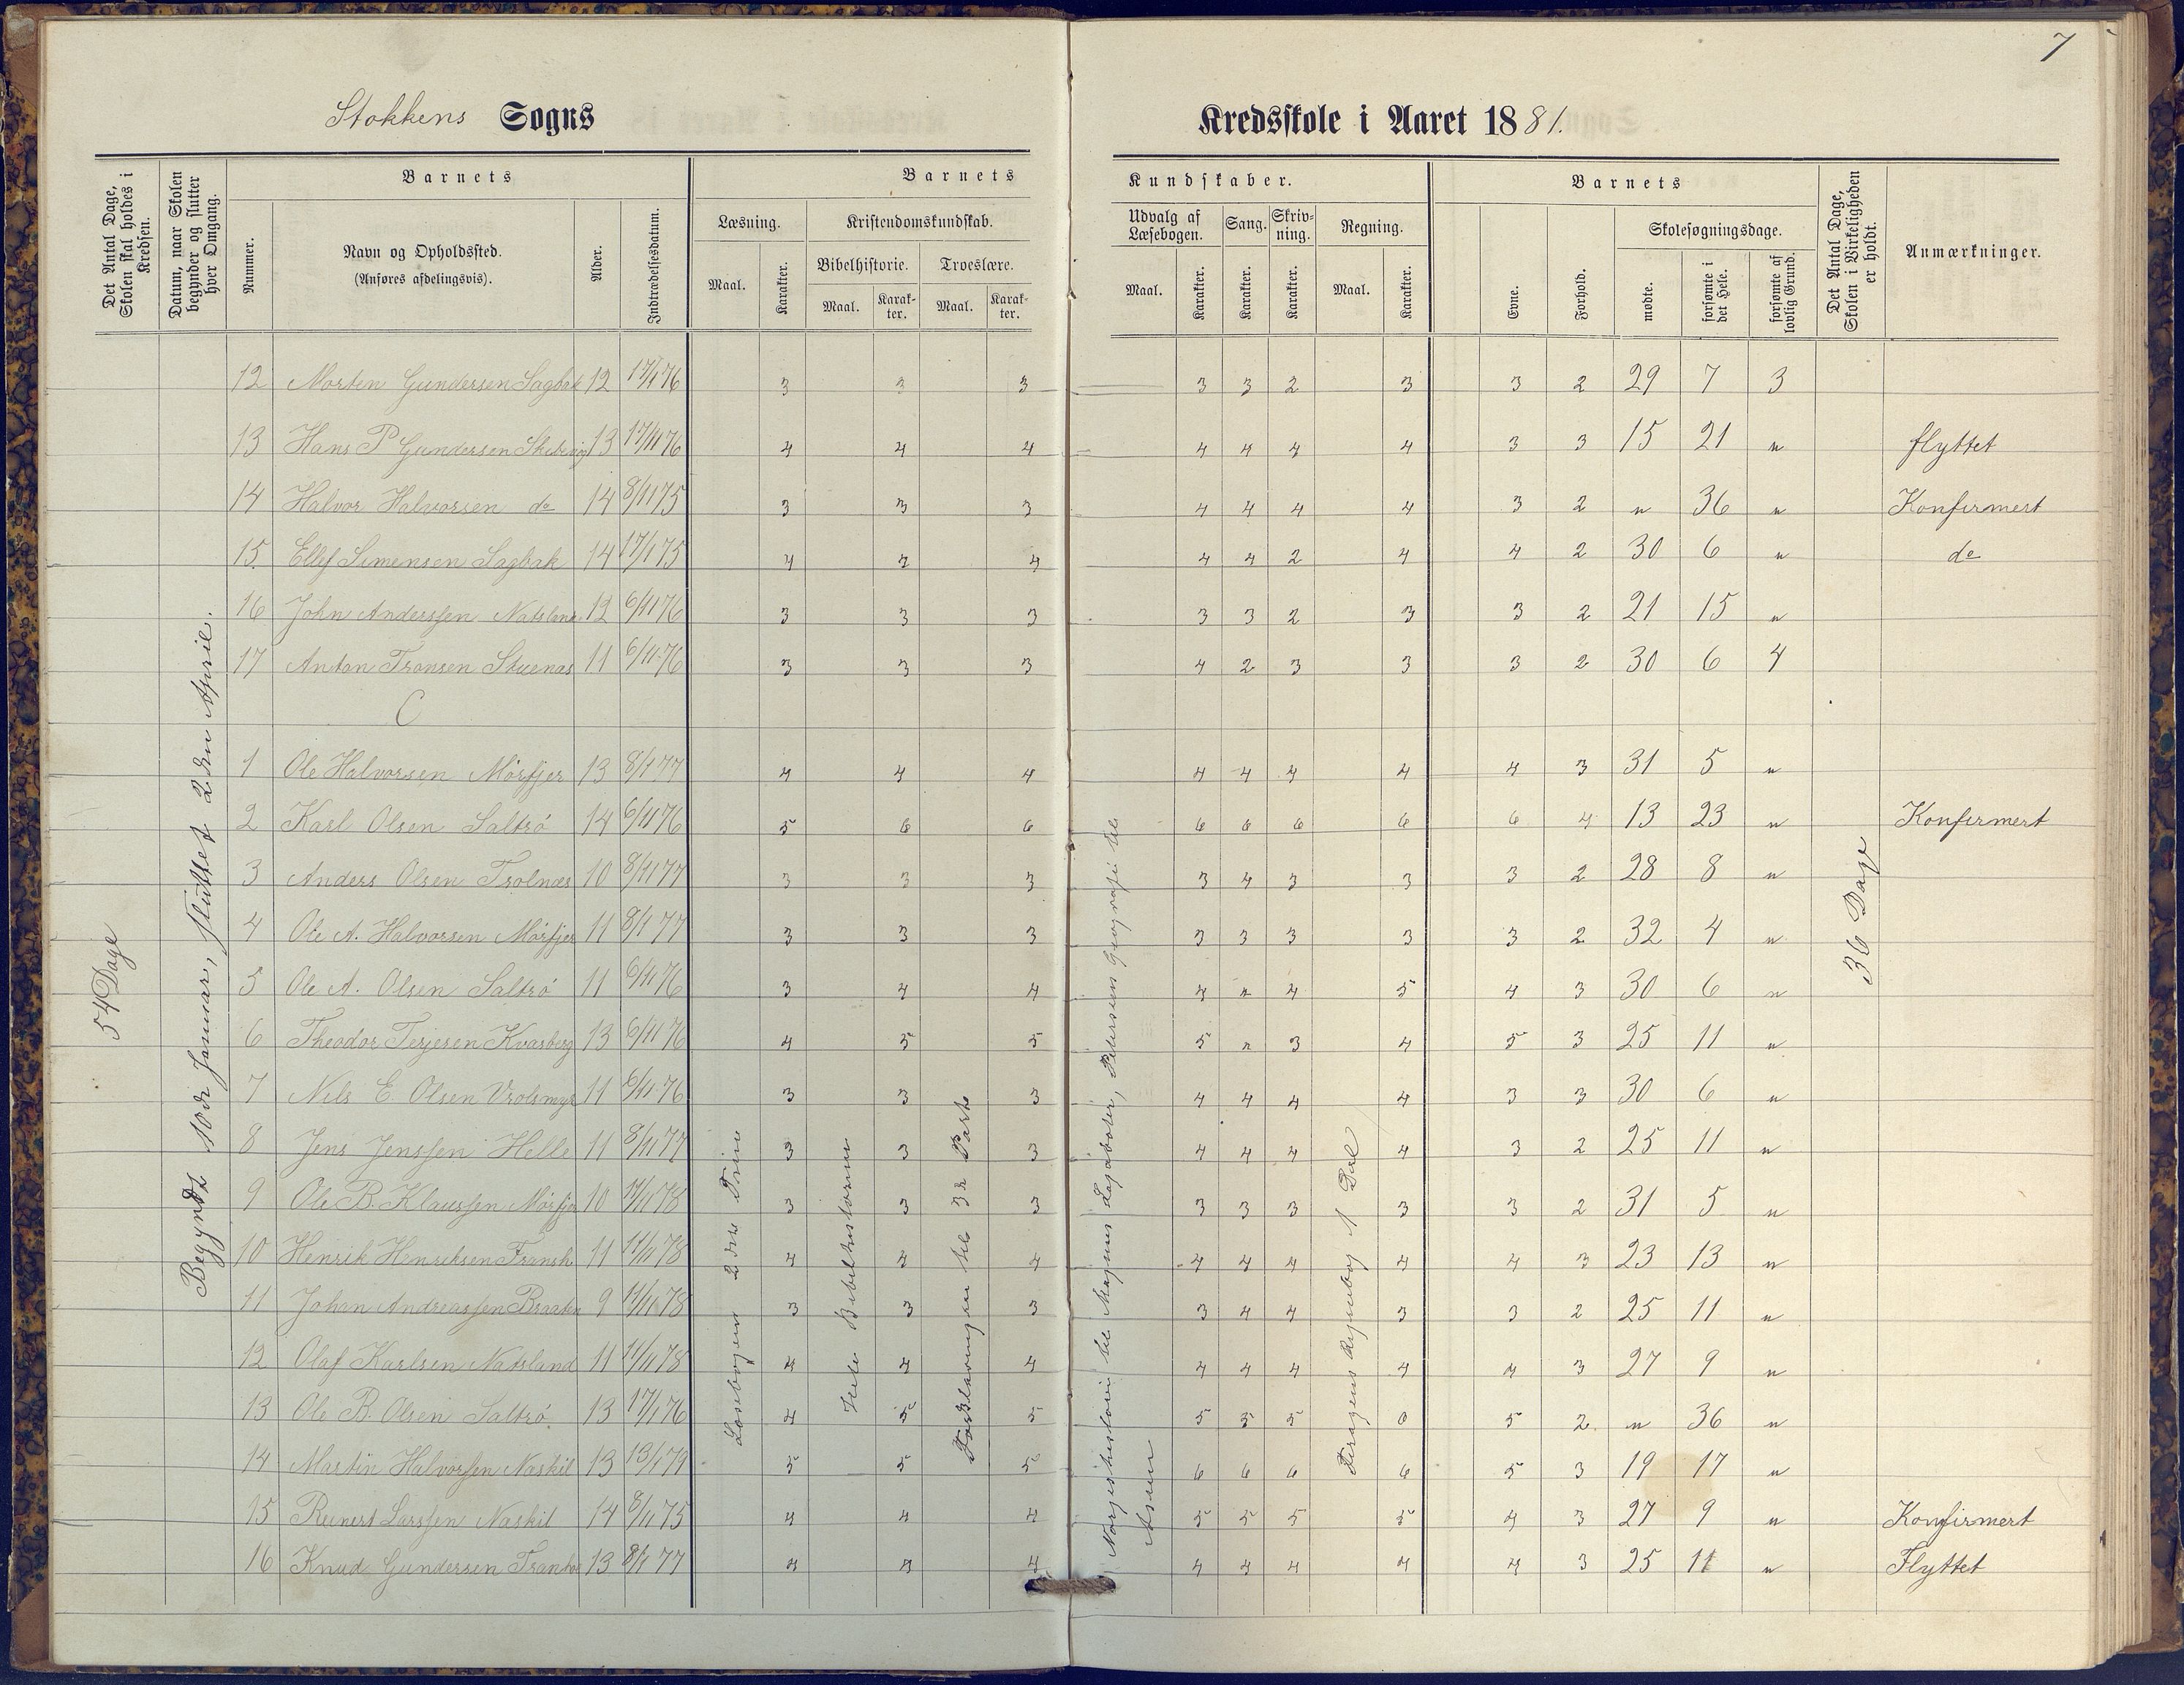 7
Stokkens Sogns Kredsskole i Aaret 1881.
Det Antal Dage, Skolen skal holdes i Kredsen.
Datum, naar Skolen begynder og slutter hver Omgang.
Barnets
Nummer.
Navn og Opholdssted.
(Anføres afdelingsvis).
Alder.
Indtrædelsesdatum.
Barnets Kundskaber.
Læsning.
Maal. Karakter.
Kristendomskundskab.
Bibelhistorie. Troeslære.
Maal. Karakter. Maal. Karakter.
Udvalg af Læsebogen.
Maal. Karakter.
Sang. Karakter.
Skrivning. Karakter.
Regning.
Maal. Karakter.
Barnets
Evne. Forhold.
Skolesøgningsdage.
mødte. forsømte i det Hele. forsømte af lovlig Grund.
Det Antal Dage, Skolen i Virkeligheden er holdt.
Anmærkninger.
54 Dage
Begyndt 10de Januar, sluttet 2den April.
12 Morten Gundersen Sagbak 12 17/1 76 3 3 3 3 3 2 3 3 2 29 7 3
13 Hans P Gundersen 13 17/11 76 4 4 4 4 4 4 4 3 3 15 21 " flyttet
14 Halvor Halvorsen do 14 8/11 75 3 3 3 4 4 4 4 3 2 " 36 " Konfirmert
15. Ellef Simensen Sagbak 14 17/1 75 4 4 4 4 4 2 4 4 2 30 6 " do
16 John Anderssen 12 6/11 76 3 3 3 3 3 2 3 3 2 21 15 "
17 Anton Tronsen Stuenæs 11 6/11 76 3 3 3 4 2 3 3 3 2 30 6 4
C
1 Ole Halvorsen Mørfjer 13 8/1 77 4 4 4 4 4 4 4 4 3 31 5 "
2 Karl Olsen Saltrø 14 6/11 76 5 6 6 6 6 6 6 6 4 13 23 " Konfirmert
3 Anders Olsen Trolnæs 10 8/11 77 3 3 3 3 4 3 3 3 2 28 8 "
4 Ole A. Halvorsen Mørfjer 11 8/1 77 3 3 3 3 3 3 3 3 2 32 4 "
5 Ole A. Olsen Saltrø 11 6/11 76 3 4 4 4 " 4 5 4 3 30 6 "
6 Theodor Terjesen Kvasberg 13 6/11 76 4 5 5 5 " 3 4 5 3 25 11 "
7 Nils E. Olsen Vrolsmyr 11 6/11 76 3 3 3 4 4 4 4 3 3 30 6 "
8 Jens Jenssen Helle 11 8/11 77 3 3 3 4 4 4 4 3 2 25 11 "
9 Ole B. Klaussen Mørfjer 10 11/11 78 3 3 3 3 3 3 3 3 2 31 5 "
10 Henrik Henriksen 11 11/11 78 4 4 4 4 4 4 4 4 3 23 13 "
11 Johan Andreassen Braaten 9 11/11 78 3 3 3 3 4 4 3 3 2 25 11 "
12 Olaf Karlsen Natsland 11 11/11 78 4 4 4 4 4 4 4 4 3 27 9 "
13 Ole B. Olsen Saltrø 13 17/1 76 4 5 5 5 5 5 0 5 2 " 36 "
14 Martin Halvorsen Naskil 13 13/1 79 5 5 5 6 6 6 6 5 3 19 17 "
15 Reinert Larssen Naskil 14 8/11 75 4 4 4 5 5 5 5 4 3 27 9 " Konfirmert
16 Knud Gundersen 13 8/1 77 4 4 4 4 4 4 4 4 3 25 11 " Flyttet
Læsebogen 2det Trin
Hele Bibelhistorien
Forklaringen til 3de Part
Norgeshistorien til Magnus Lagabøter, Petersens Geografi til Asien
Regnebog 1 Del
36 Dage